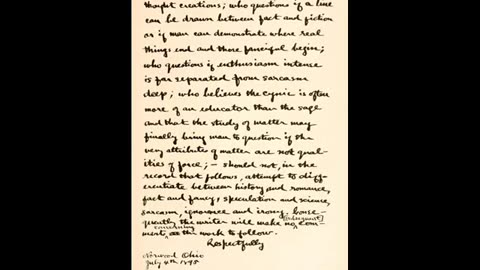 thought creations; who questions if a line
can be drawn between fact and fiction
or if man can demonstrate where real
things end and those fanciful begin;
who questions if enthusiasm intense
is far separated from sarcasm
deep; who believes the cynic is often
more of an educator than the sage
and that the study of matter may
finally bring man to question if the
very attributes of matter are not qual-
ities of force; — should not, in the
record that follows, attempt to diff-
erentiate between history and romance,
fact and fancy, speculation and science,
sarcasm, ignorance and irony. Conse-
quently the writer will make no
ments, concerning the work to follow.
Respectfully
Norwood Ohio
July 4th, 1895